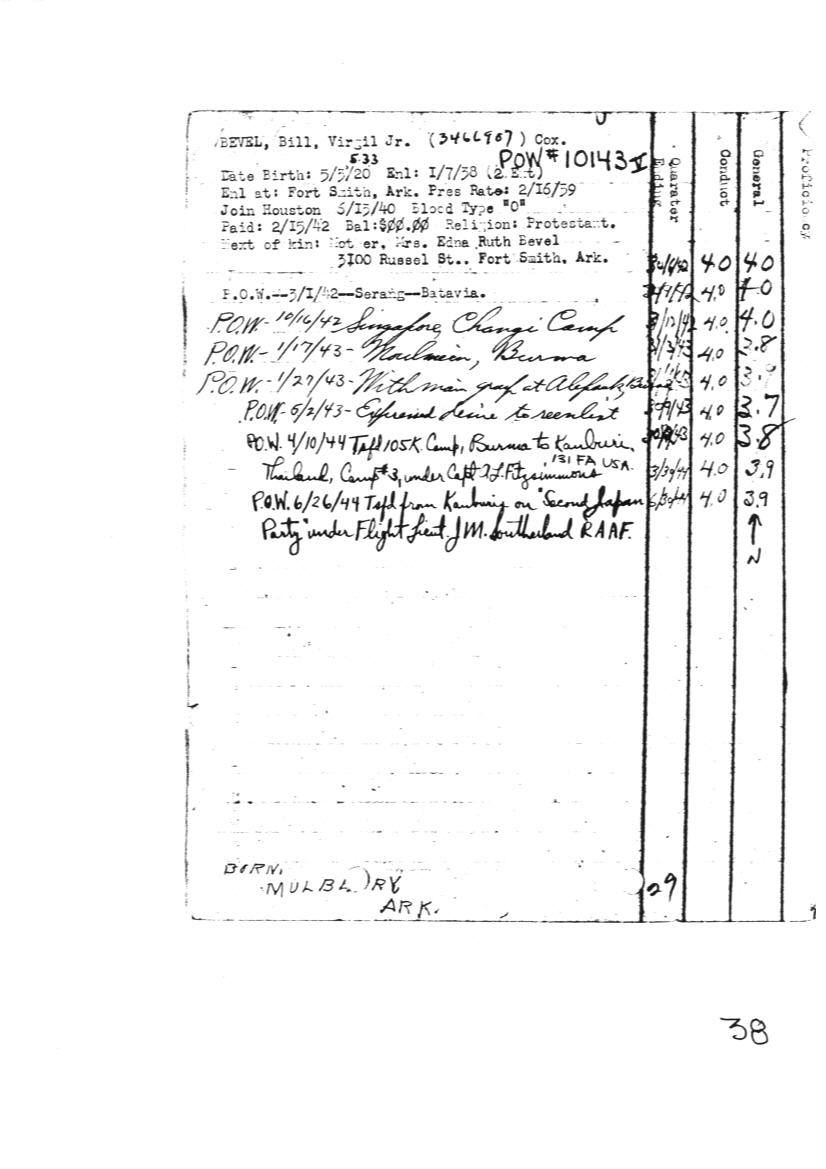 BEVEL, Bill, Virgil Jr. (3466967) Cox.
5.33
POW# 10143 V
Date Birth: 5/5/20 Enl: I/7/38 (2 Ext)
Enl at: Fort Smith, Ark. Pres Rate: 2/16/39
Join Houston 6/15/40 Blood Type "O"
Paid: 2/15/42 Bal:$00.00 Religion: Protestant.
Next of kin: Mother, Mrs. Edna Ruth Bevel
3I00 Russel St.. Fort Smith, Ark.
P.O.W.--3/I/42--Serang--Batavia.
P.O.W.- 10/16/42 Singapore, Changi Camp
P.O.W- 1/17/43- Moulmein, Burma
P.O.W.- 1/27/43- With main group at
P.O.W.- 5/2/43- Expressed desire to reenlist
P.O.W. 4/10/44 Tsfd 105K. Camp, Burma to Kanburi,
Thailand, Camp #3, under Capt A.L. Fitzsimmons 131 FA USA.
P.O.W. 6/26/44 Tsfd from Kanburi on "Second Japan
Party" under Flight Lieut. J M. Southerland RAAF.
Quarater Conduct General Proficiecy
4.0 4.0
4.0
4.0 4.0
4.0 3.8
4.0
4.0 3.7
4.0 3.8
4.0 3.9
4.0 3.9
N
BORN.
ARK.
29
38